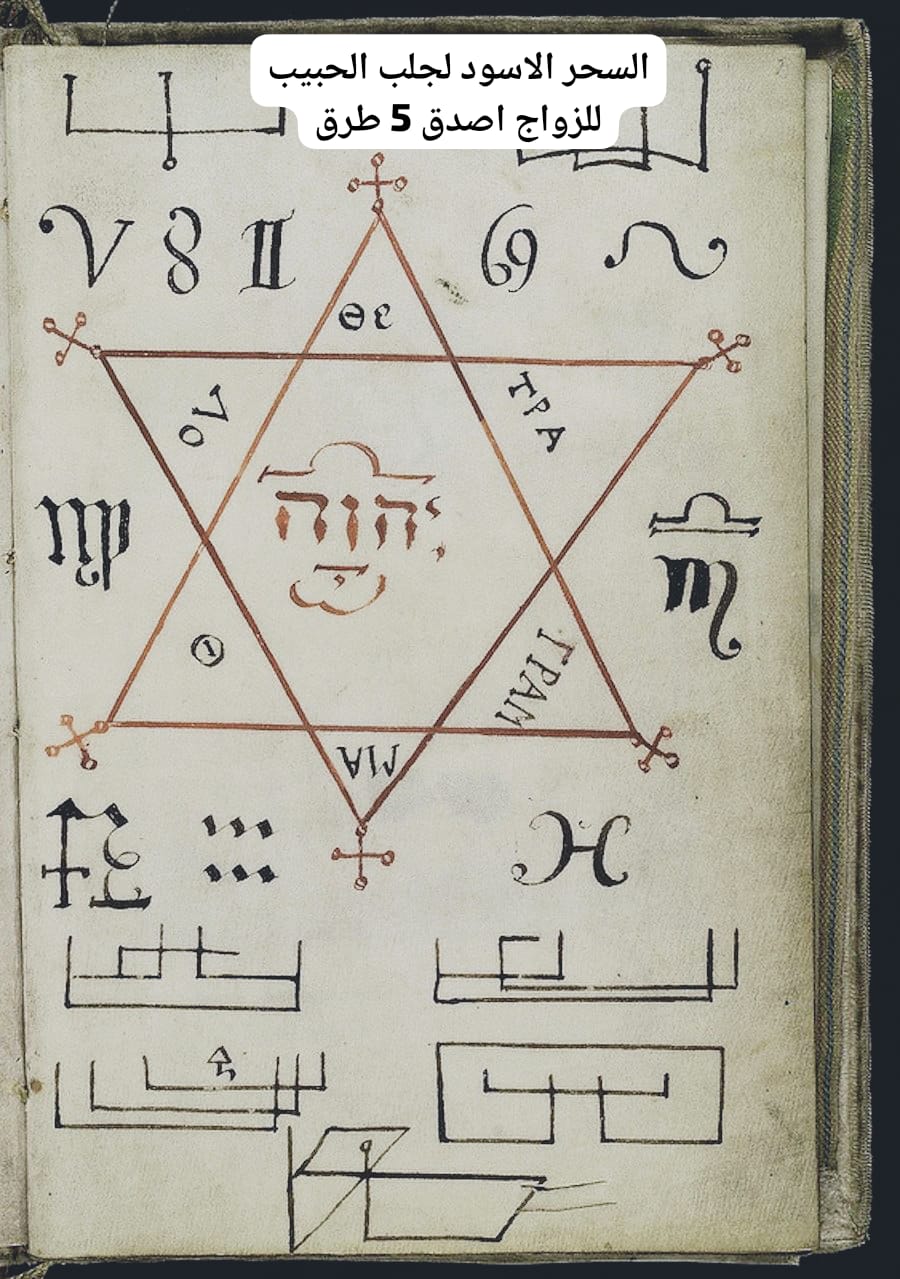 السحر الاسود لجلب الحبيب
للزواج اصدق 5 طرق
ΤΡΑ
יהוה
ΓΡΑΜ
ΜΑ